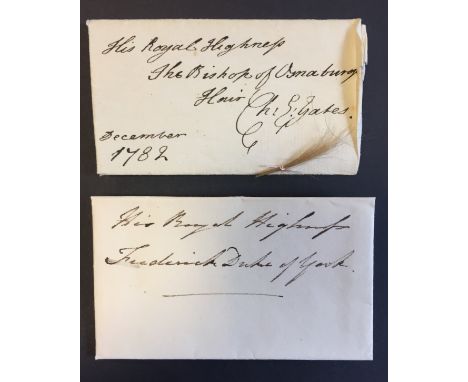 His Royal Highness
The Bishop of Osnaburg
Hair Ch: G: Yates.
December
1782
His Royal Highness
Frederick Duke of York.